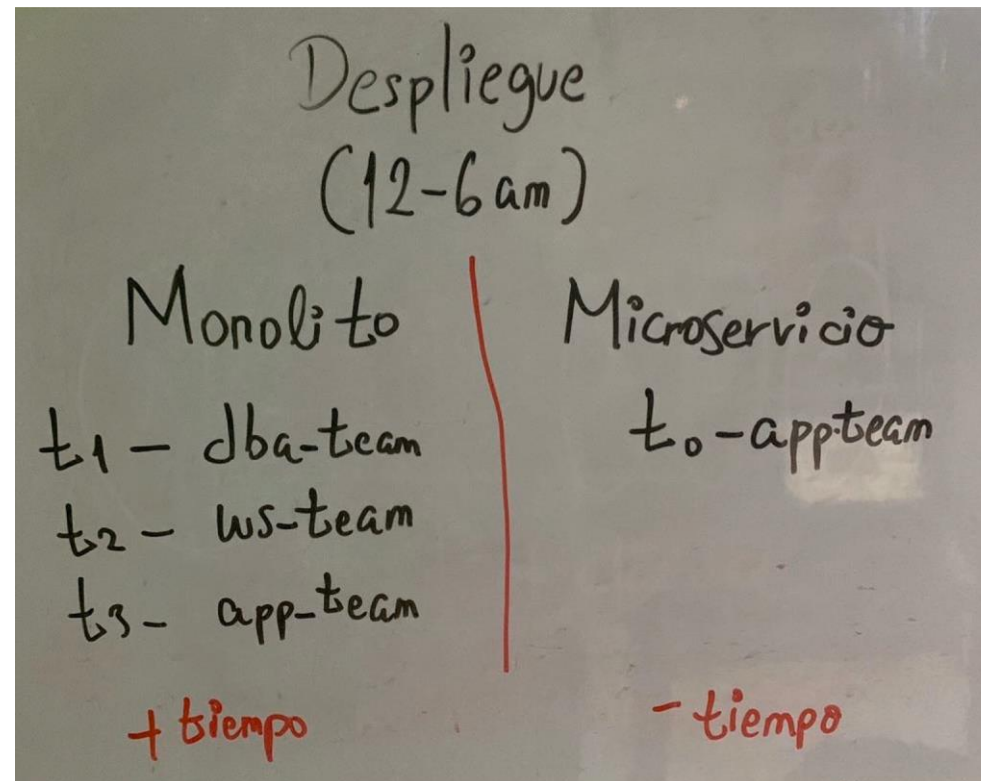 Despliegue
(12-6 am)
Monolito
t1 - dba-team
t2 - ws-team
t3 - app-team
+ tiempo
Microservicio
t0 - app-team
- tiempo